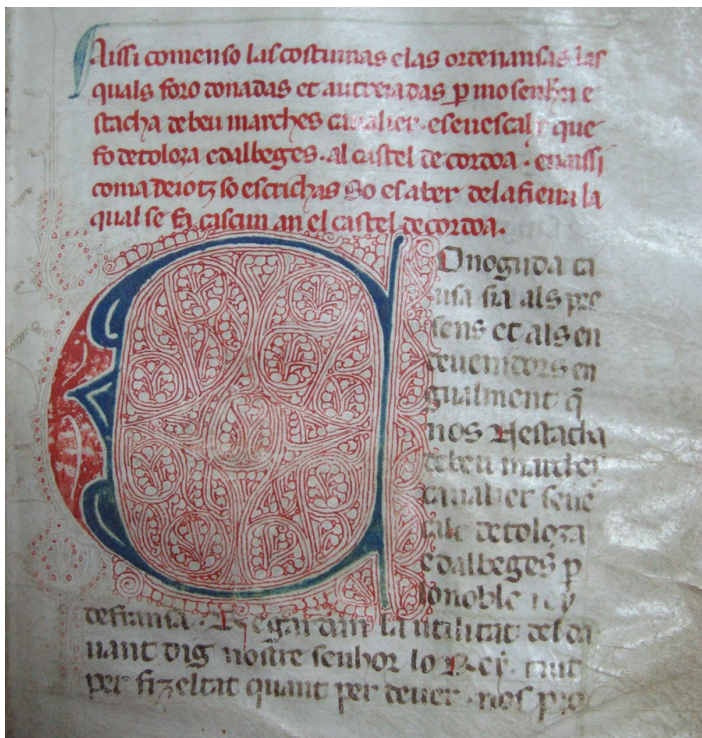 Aissi comenso las costumas e las ordenansas las
quals foro donadas et autreiadas p mosenhen e
stacha de beu marches cavalier · e senescalx que
fo de toloza e d albeges · al castel de cordoa · en aissi
coma deiotz so escrichas So es a ber de la fieira la
qual se fa cascun an el castel de cordoa.
Conoguda ca
usa sia als pre
sens et als en
devenidors en
gualment q̃
nos Nestacha
de beu marches
cavalier sene
de toloza
e d albeges p
lo noble rey
de fransa · Regardan la utilitat del da
vant dig nostre senhor lo Rey. tant
per fizeltat quant per dever · nos pro